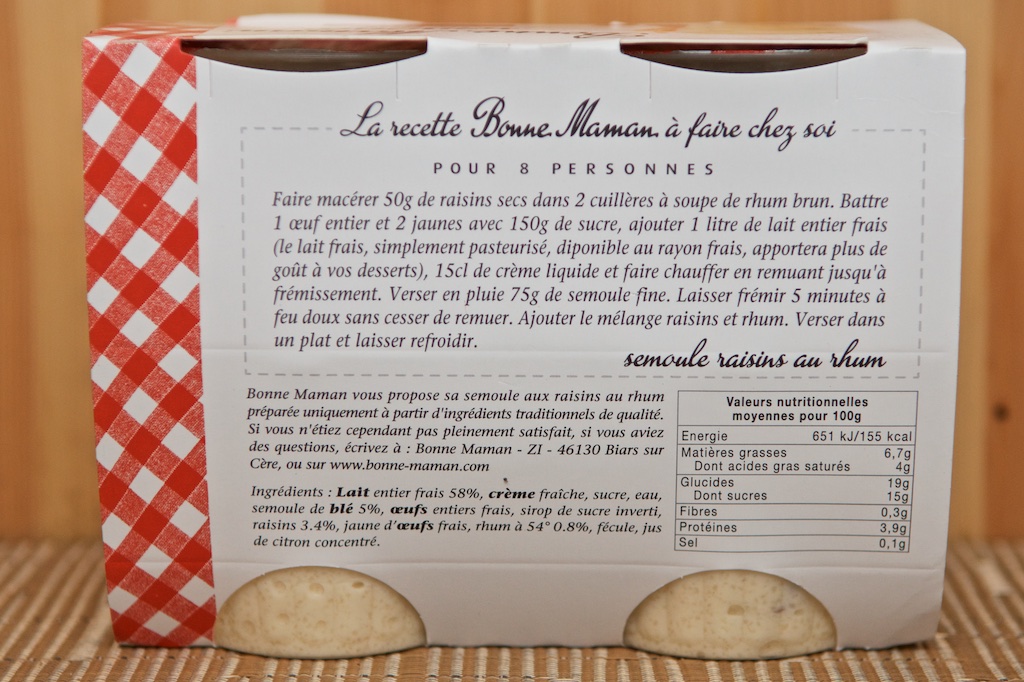 La recette Bonne Maman à faire chez soi
POUR 8 PERSONNES
Faire macérer 50g de raisins secs dans 2 cuillères à soupe de rhum brun. Battre
1 œuf entier et 2 jaunes avec 150g de sucre, ajouter 1 litre de lait entier frais
(le lait frais, simplement pasteurisé, diponible au rayon frais, apportera plus de
goût à vos desserts), 15cl de crème liquide et faire chauffer en remuant jusqu'à
frémissement. Verser en pluie 75g de semoule fine. Laisser frémir 5 minutes à
feu doux sans cesser de remuer. Ajouter le mélange raisins et rhum. Verser dans
un plat et laisser refroidir.
semoule raisins au rhum
Bonne Maman vous propose sa semoule aux raisins au rhum
préparée uniquement à partir d'ingrédients traditionnels de qualité.
Si vous n'étiez cependant pas pleinement satisfait, si vous aviez
des questions, écrivez à : Bonne Maman - ZI - 46130 Biars sur
Cère, ou sur www.bonne-maman.com
Ingrédients : Lait entier frais 58%, crème fraîche, sucre, eau,
semoule de blé 5%, œufs entiers frais, sirop de sucre inverti,
raisins 3.4%, jaune d'œufs frais, rhum à 54° 0.8%, fécule, jus
de citron concentré.
Valeurs nutritionnelles
moyennes pour 100g
Energie 651 kJ/155 kcal
Matières grasses 6,7g
Dont acides gras saturés 4g
Glucides 19g
Dont sucres 15g
Fibres 0,3g
Protéines 3,9g
Sel 0,1g